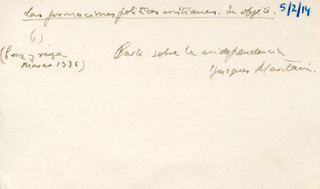 Las formaciones políticas cristianas. Su objeto. 5/2/14
6)
(Cruz y raya Marzo 1936)
Carta sobre la independencia
Jacques Maritain.